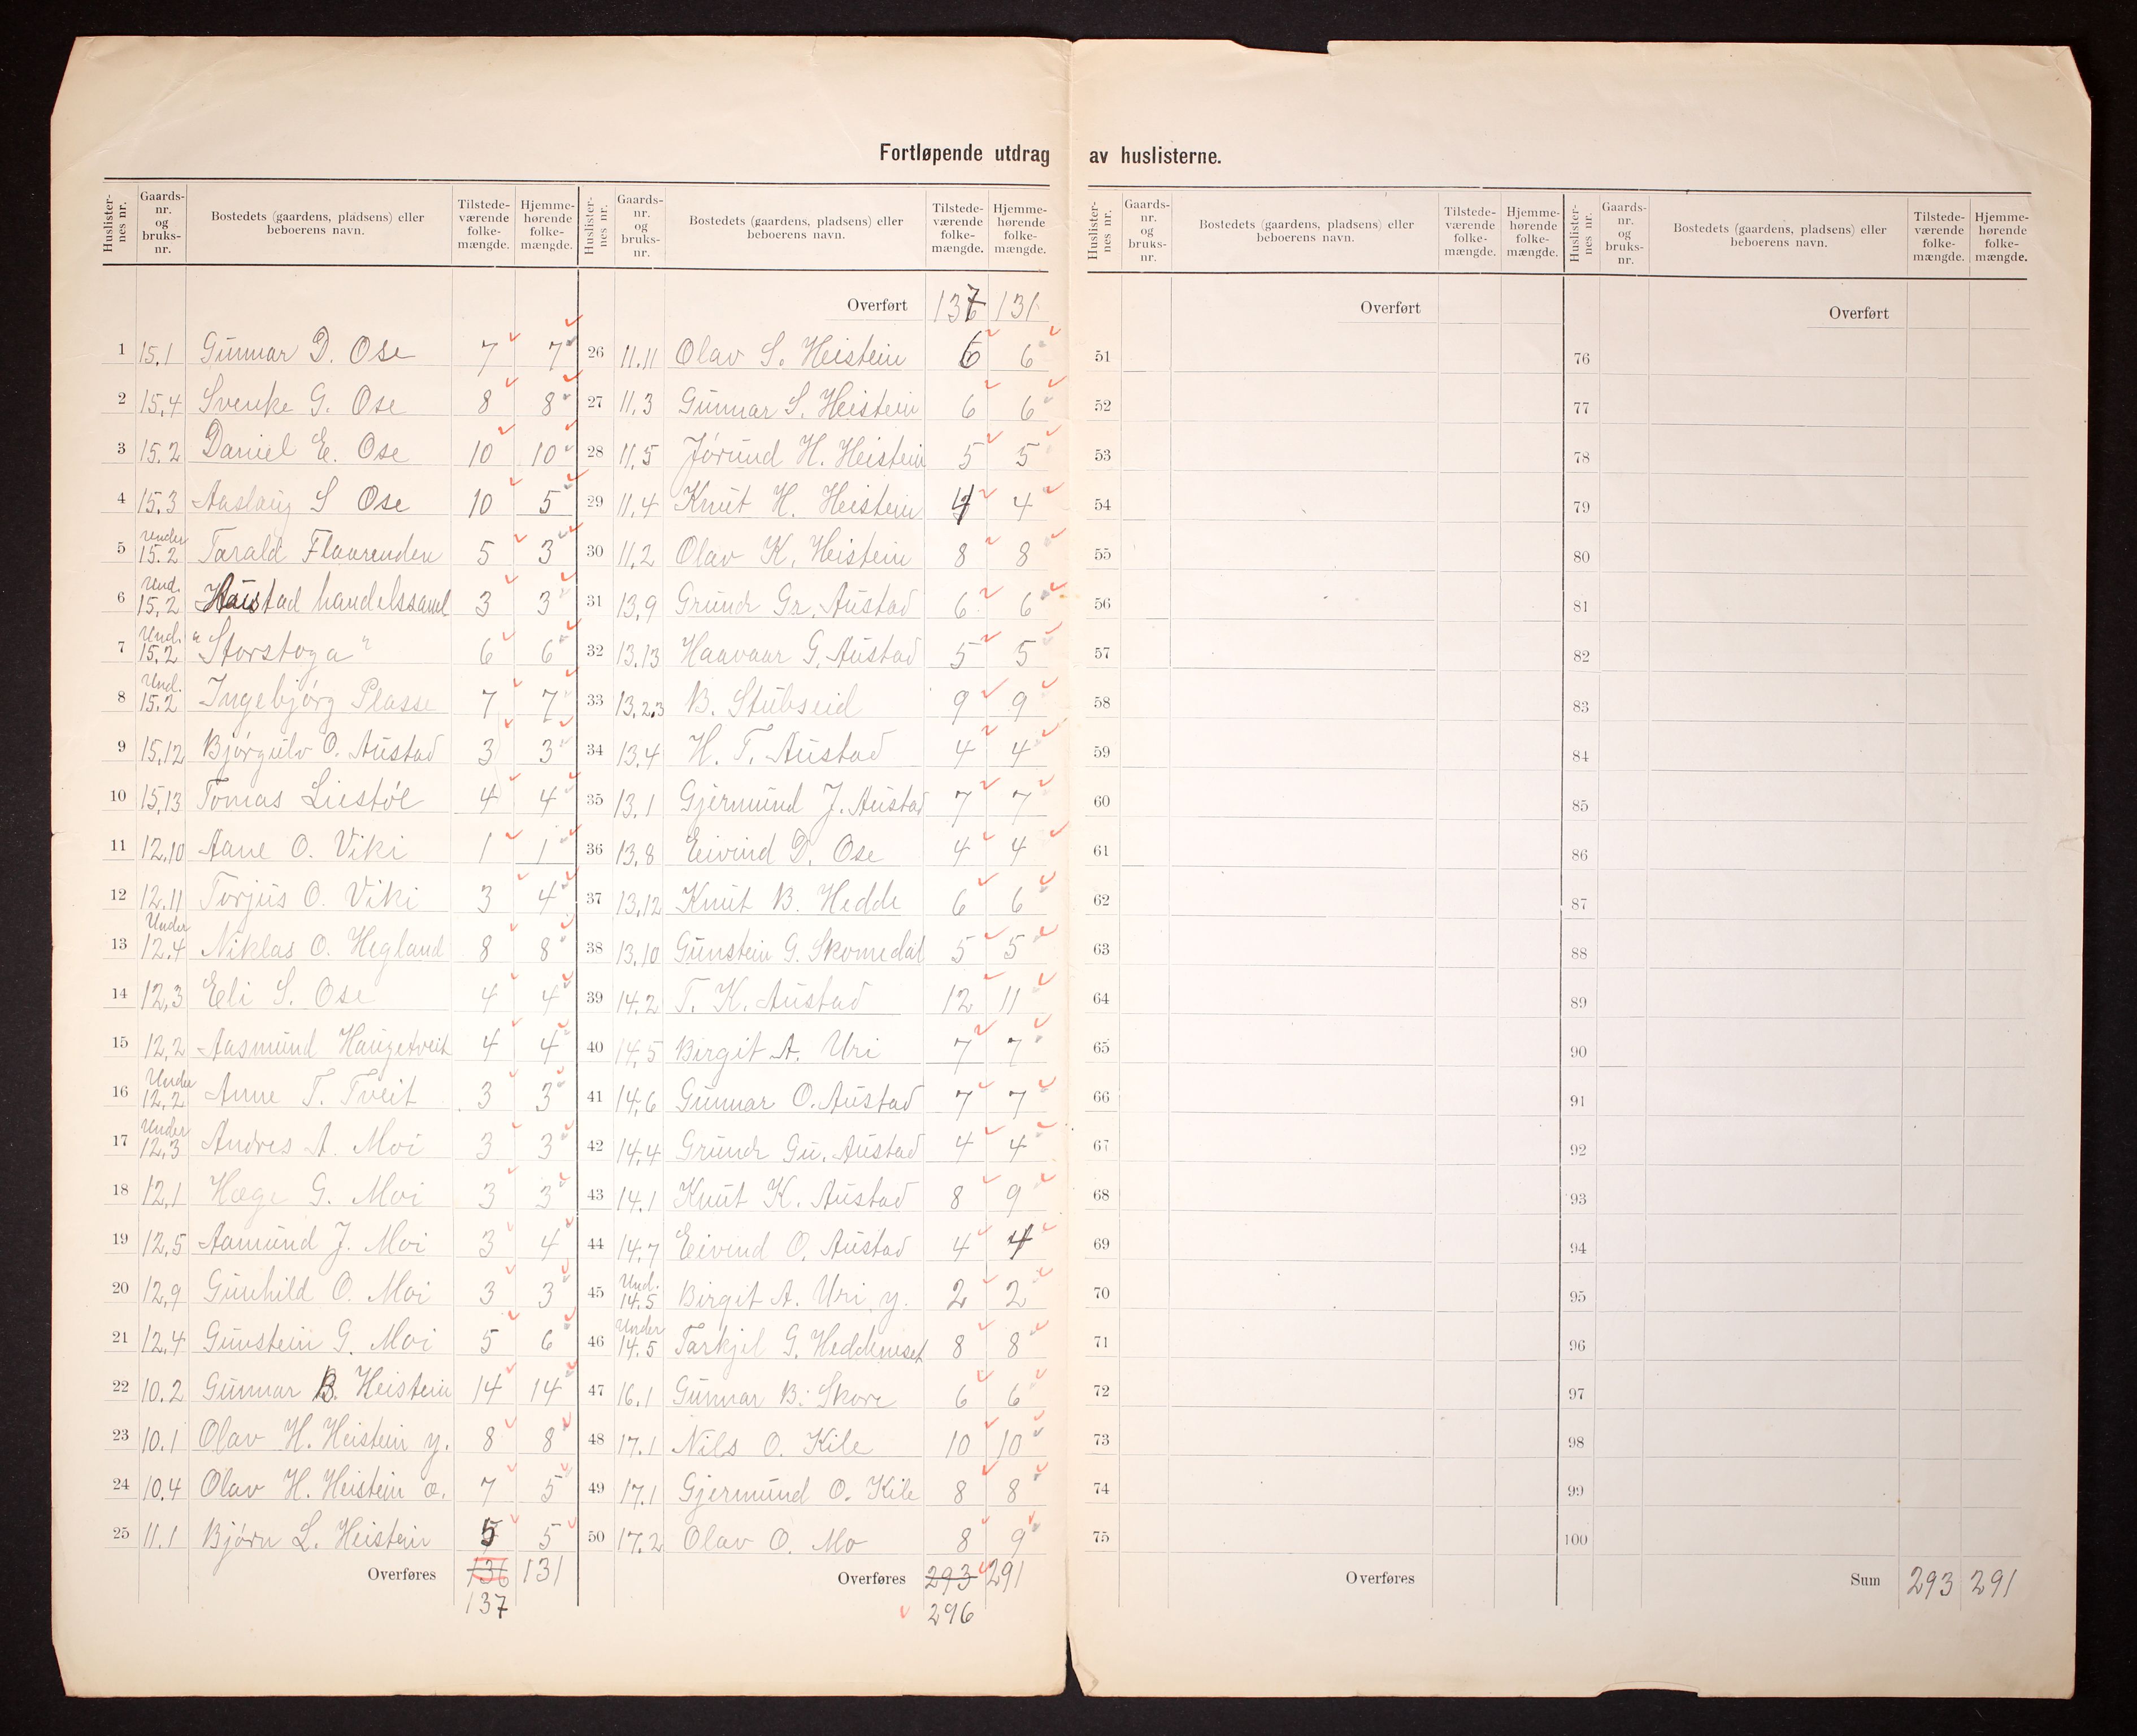 Fortløpende utdrag av huslisterne.
Huslister-nes nr. Gaards-nr. og bruks-nr. Bostedets (gaardens, pladsens) eller beboerens navn. Tilstede-værende folke-mængde. Hjemme-hørende folke-mængde.
1 15,1 Gunnar D. Ose 7 7
2 15,4 Svenke G. Ose 8 8
3 15,2 Daniel E. Ose 10 10
4 15,3 Aaslaug S Ose 10 5
5 under 15.2 Tarald Flaarenden 5 3
6 Und. 15,2 Haustad handelssaml 3 3
7 Und. 15,2 "Storstoga" 6 6
8 Und. 15.2 Ingebjørg Plasse 7 7
9 15,12 Bjørgulv O. Austad 3 3
10 15,13 Tomas Liestøl 4 4
11 12,10 Aane O. Viki 1 1
12 12.11 Torjus O. Viki 3 4
13 Under 12.4 Niklas O. Hegland 8 8
14 12,3 Eeli S. Ose 4 4
15 12,2 Aasmund Haugetveit 4 4
16 Under 12,2 Anne T. Tveit 3 3
17 Under 12,3 Andres A. Moi 3 3
18 12,1 Hæge G. Moi 3 3
19 12,5 Aamund J. Moi 3 4
20 12,9 Gunhild O. Moi 3 3
21 12,4 Gunstein G. Moi 5 6
22 10.2 Gunnar B. Heistein 14 14
23 10.1 Olav H. Heistein y. 8 8
24 10.4 Olav H. Heistein æ. 7 5
25 11.1 Bjørn L. Heistein 5 5
Overføres 136 131
137
Huslister-nes nr. Gaards-nr. og bruks-nr. Bostedets (gaardens, pladsens) eller beboerens navn. Tilstede-værende folke-mængde. Hjemme-hørende folke-mængde.
Overført 137 131
26 11.11 Olav S. Heistein 6 6
27 11,3 Gunnar S. Heistein 6 6
28 11,5 Jørund H. Heistein 5 5
29 11,4 Knut H. Heistein 4 4
30 11,2 Olav K. Heistein 8 8
31 13,9 Grundr Gr. Austad 6 6
32 13,13 Haavaar G. Austad 5 5
33 13,2,3 B. Stubseid 9 9
34 13,4 H. T. Austad 4 4
35 13,1 Gjermund J. Austad 7 7
36 13,8 Eivind D. Ose 4 4
37 13,12 Knut B. Hedde 6 6
38 13,10 Gunstein G. Skomedal 5 5
39 14.2 T. K. Austad 12 11
40 14,5 Birgit A. Uri 7 7
41 14,6 Gunnar O. Austad 7 7
42 14,4 Grundr Gu. Austad 4 4
43 14.1 Knut K. Austad 8 9
44 14,7 Eivind O. Austad 4 4
45 Und. 14.5 Birgit A. Uri y. 2 2
46 Under 14.5 Tarkjel G. Heddeneset 8 8
47 16.1 Gunnar B. Skore 6 6
48 17.1 Nils O. Kile 10 10
49 17.1 Gjermund O. Kile 8 8
50 17.2 Olav O. Mo 8 9
Overføres 293 291
296
Huslister-nes nr. Gaards-nr. og bruks-nr. Bostedets (gaardens, pladsens) eller beboerens navn. Tilstede-værende folke-mængde. Hjemme-hørende folke-mængde.
Overført
51
52
53
54
55
56
57
58
59
60
61
62
63
64
65
66
67
68
69
70
71
72
73
74
75
Overføres
Huslister-nes nr. Gaards-nr. og bruks-nr. Bostedets (gaardens, pladsens) eller beboerens navn. Tilstede-værende folke-mængde. Hjemme-hørende folke-mængde.
Overført
76
77
78
79
80
81
82
83
84
85
86
87
88
89
90
91
92
93
94
95
96
97
98
99
100
Sum 293 291